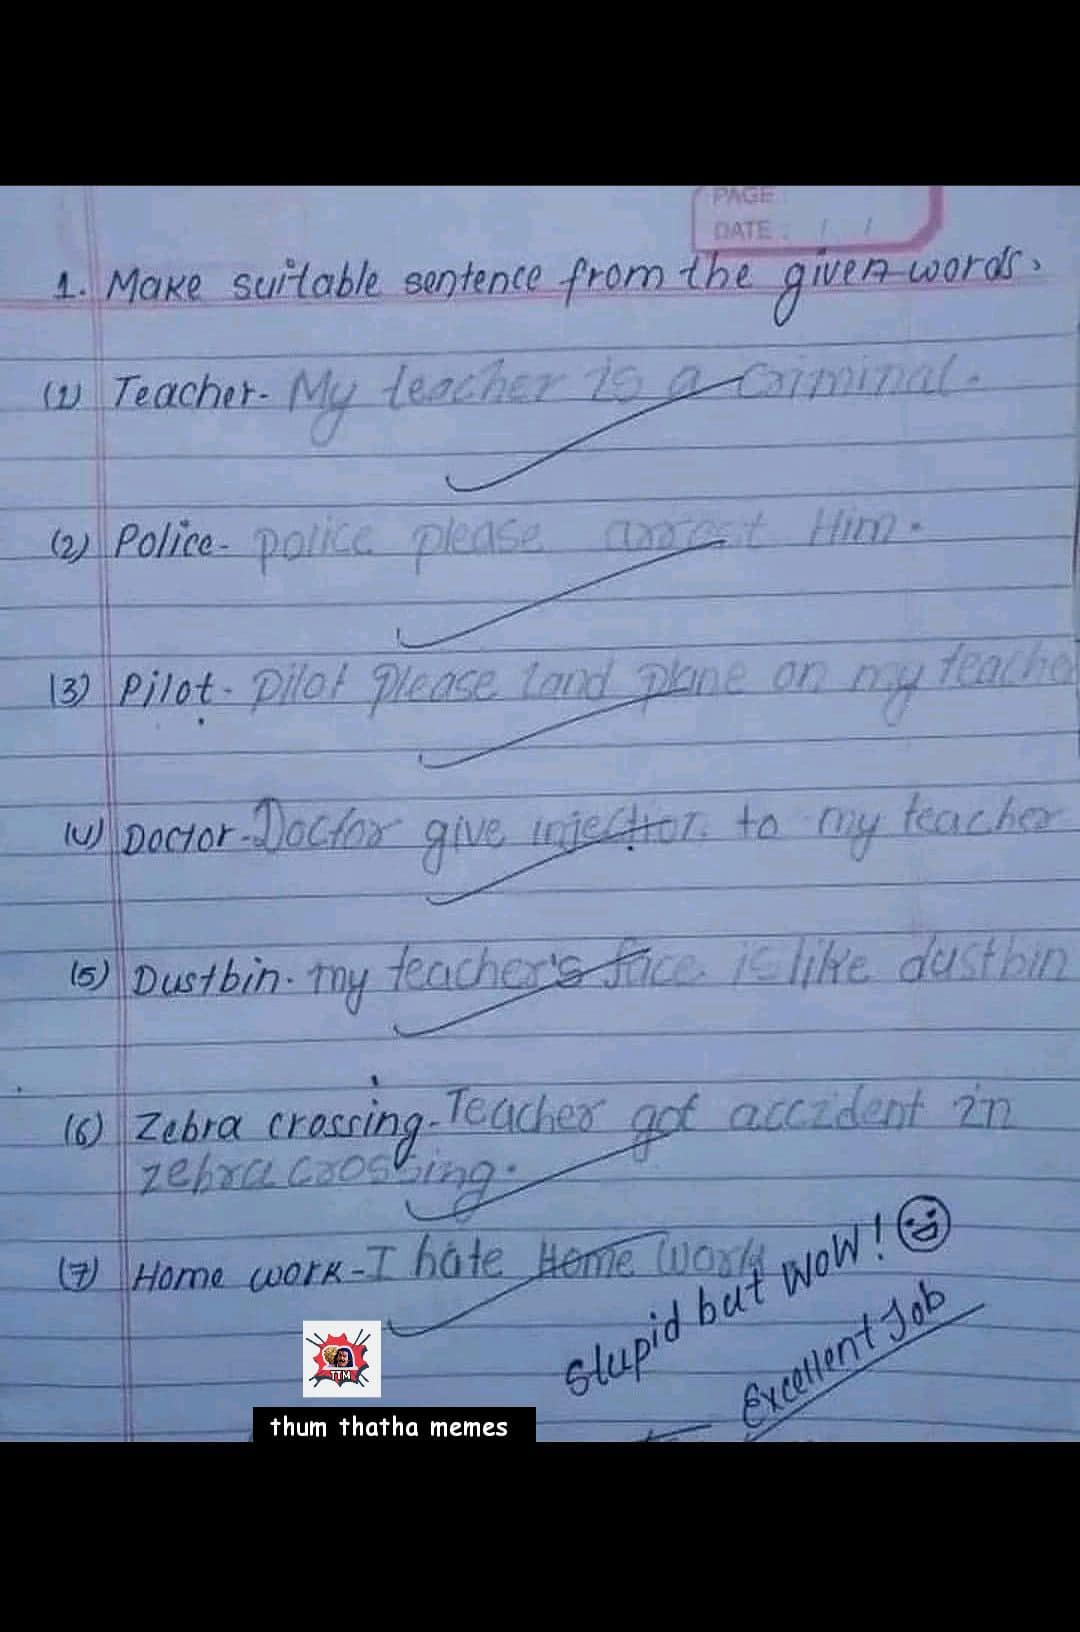 PAGE
DATE : / /
1. Make suitable sentence from the given words.
(1) Teacher- My teacher is a criminal.
(2) Police- police please arrest Him.
(3) Pilot- pilot please land plane on my teacher
(4) Doctor- Doctor give injection to my teacher
(5) Dustbin- my teacher's face is like dustbin
(6) Zebra crossing- Teacher got accident in
zebra crossing.
(7) Home work- I hate Home work
Stupid but WOW!
Excellent Job
TTM
thum thatha memes